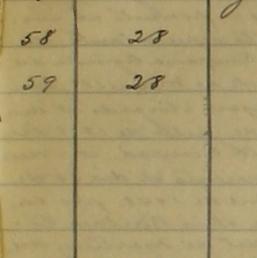 58 28
59 28